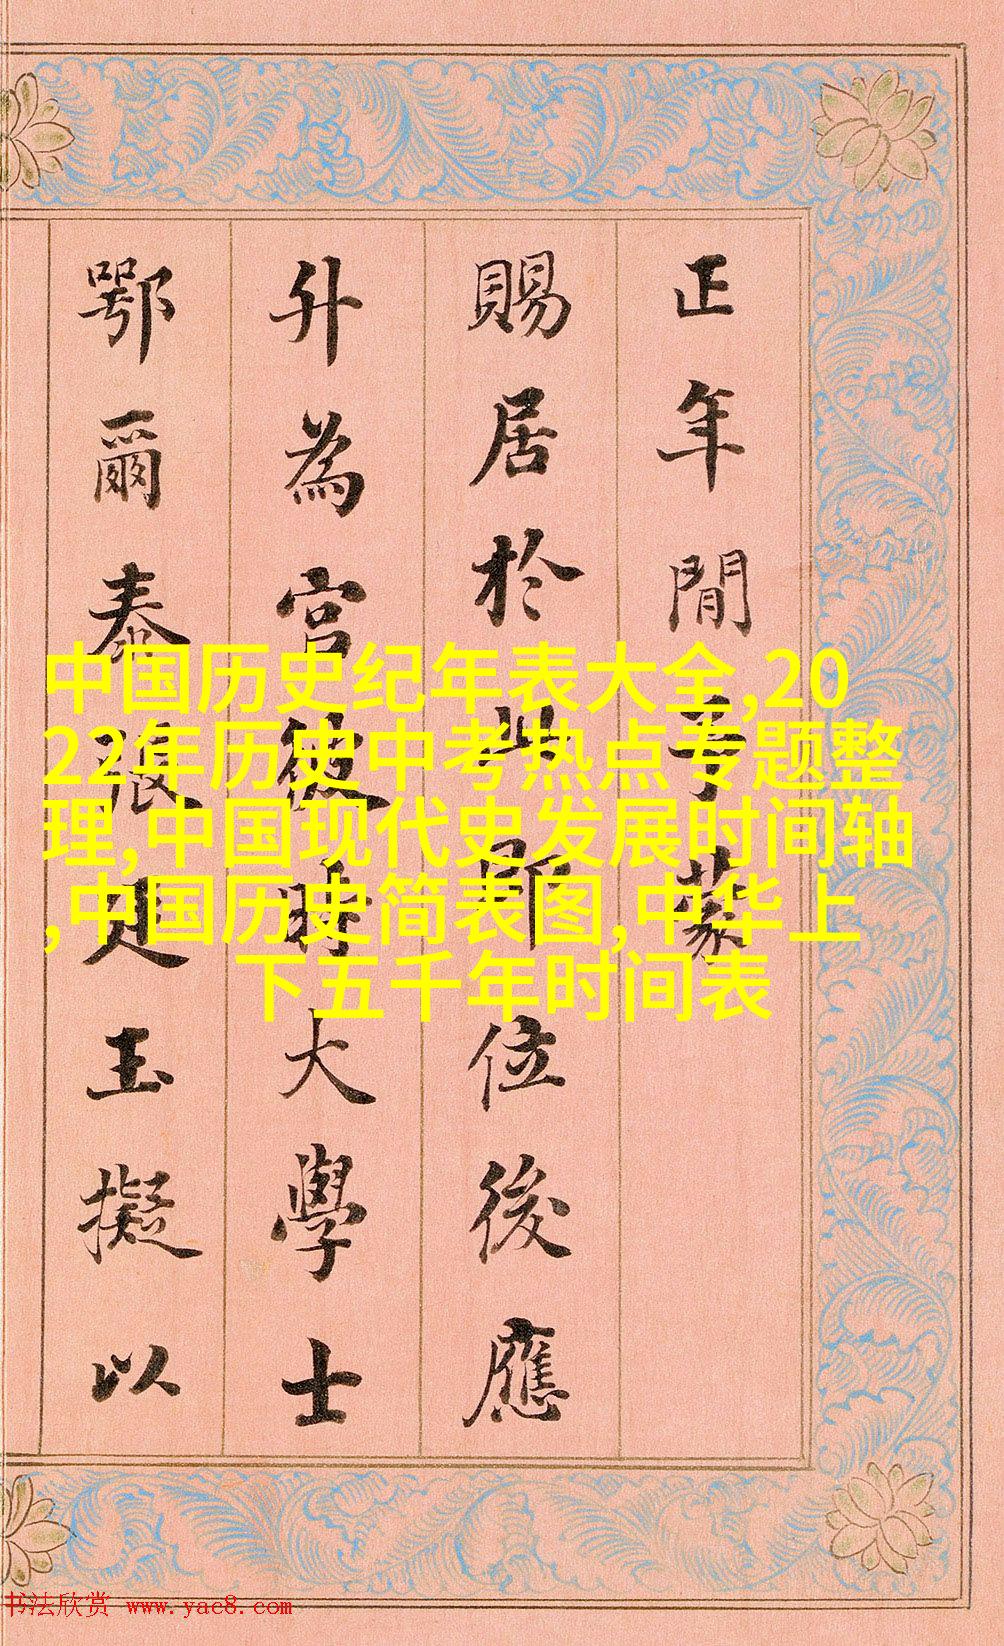 正年間予蒙
賜居於此即位後應
升為宮彼時大學士
鄂爾泰張廷玉擬以
中国历史纪年表大全,20
22年历史中考热点专题整
理,中国现代史发展时间轴
,中国历史简表图,中华上
下五千年时间表
书法欣赏 www.yac8.com